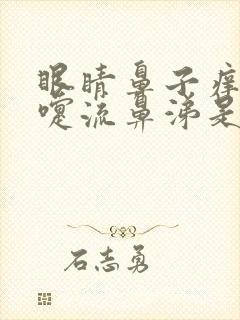 眼睛鼻子痒
嚏流鼻涕是
石志勇